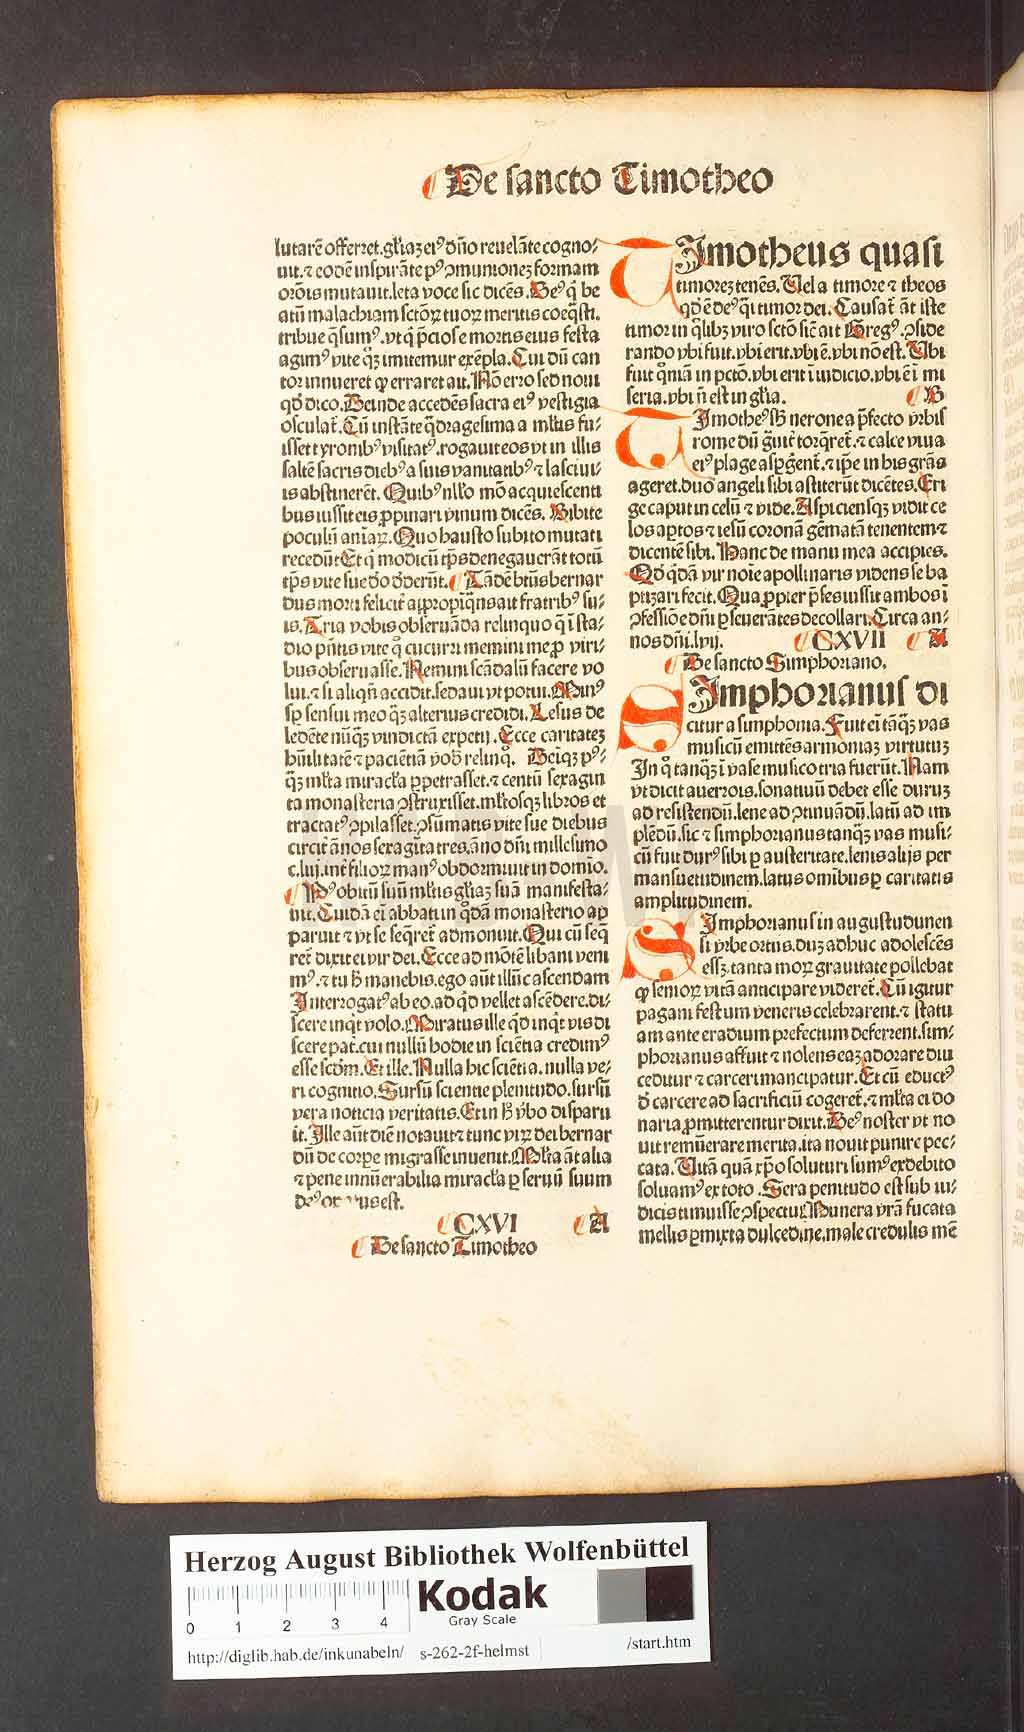 De sancto Timotheo
lutarē offerret. gl'iaꝫ eiꝰ dn̄o reuelāte cogno⸗
uit. ⁊ eodē inspirāte pꝰ ꝯmunioneꝫ formam
orōis mutauit. leta voce sic dicēs. Deꝰ q̇ be
atū malachiam sctōꝝ tuoꝝ meritis coeq̄sti.
tribue q̄sumꝰ. vt q̇ p̄ciose mortis eius festa
agimꝰ vite qꝫ imitemur exēpla. Cui dū can
tor innueret ꝙ erraret ait. Nō erro sed noui
qd' dico. Deinde accedēs sacra eiꝰ vestigia
osculat̄. Cū instāte q̄dragesima a ml'tis fu⸗
isset tyronibꝰ visitatꝰ. rogauit eos vt in illis
saltē sacris diebꝰ a suis vanitatibꝰ ⁊ lasciui⸗
is abstinerēt. Quibꝰ nll'o mō acquiescenti
bus iussit eis ꝓpinari vinum dicēs. Bibite
poculū aīaꝝ. Quo hausto subito mutati
recedūt Et q̇ modicū tp̄s denegauerāt totū
tp̄s vite sue dō dederūt. Tādē btūs bernar
dus morti felicit̄ appropiq̄ns ait fratribꝰ su⸗
is. Tria vobis obseruāda relinquo q̄ ī sta⸗
dio pn̄tis vite qͦ cucurri memini me ꝓ viri⸗
bus obseruasse. Nemini scādalū facere vo
lui. ⁊ si aliqn̄ accidit. sedaui vt potui. Minꝰ
sp̄ sensui meo qꝫ alterius credidi. Lesus de
ledēte nūqꝫ vindictā expetij. Ecce caritateꝫ
hūilitatē ⁊ paciētiā vob' relinqͦ. Deniqꝫ pꝰ⸗
qꝫ ml'ta miracl'a ꝑpetrasset. ⁊ centū sexagin
ta monasteria ꝯstruxisset. ml'tosqꝫ libros et
tractatꝰ ꝯpilasset. ꝯsūmatis vite sue diebus
circit̄ ānos sexagīta tres. āno dn̄i millesimo
c. lvj. int̄ filioꝝ manꝰ obdormiuit in domīo.
Pꝰ obitū suū ml'tis gl'iaꝫ suā manifesta⸗
uit. Cuidā ei abbati in qͦdā monasterio ap
paruit ⁊ vt se seq̄ret̄ admonuit. Qui cū seq̄
ret̄ dixit ei vir dei. Ecce ad mōtē libani veni
mꝰ. ⁊ tu h' manebis. ego aūt illuc ascendam
Interrogatꝰ ab eo. ad qd' vellet ascēdere. di⸗
scere inqͥt volo. Miratus ille qd' inqͥt vis di
scere pat̄. cui nullū hodie in sciētia credimꝰ
esse scdm̄. Et ille. Nulla hic sciētia. nulla ve⸗
ri cognitio. Sursū scientie plenitudo. sursū
vera noticia veritatis. Et in h' v'bo disparu
it. Ille aūt diē notauit ⁊ tunc virꝝ dei bernar
dū de corpe migrasse inuenit. Ml'ta āt alia
⁊ pene innūerabilia miracl'a ꝑ seruū suum
est.
CXVI A
De sancto Timotheo
TImotheus quasi
timoreꝫ tenēs. Vel a timore ⁊ theos
qd' ē deꝰ q̄i timor dei. Causat̄ āt iste
timor in q̄libꝫ viro sctō sic ait Gregꝰ. ꝯside
rando vbi fuit. vbi erit. vbi ē. vbi nō est. Vbi
fuit qm̄iā in pctō. vbi erit ī iudicio. vbi ē ī mi
seria. vbi n̄ est in gl'ia. B
TImotheꝰ sb' nerone a p̄fecto vrbis
rome dū ḡuit̄ torq̄ret̄. ⁊ calce viua
eiꝰ plage aspgent̄. ⁊ ip̄e in his grās
ageret. duo angeli sibi astiterūt dicētes. Eri
ge caput in celū ⁊ vide. Aspiciensqꝫ vidit ce
los aptos ⁊ iesū coronā gēmatā tenentem ⁊
dicentē sibi. Hanc de manu mea accipies.
Qd' q̄dā vir noīe apollinaris videns se ba
ptizari fecit. Qua ꝓpter p̄ses iussit ambos ī
ꝯfessiōe dn̄i ꝑseuerātes decollari. Circa an⸗
nos dn̄i. lvij. CXVII A
De sancto Simphoriano.
SImphorianus di
citur a simphonia. Fuit ei tāqꝫ vas
musicū emittēs armoniaꝫ virtutuꝫ
In qͦ tanqꝫ ī vase musico tria fuerūt. Nam
vt dicit auerrois. sonatiuū debet esse duruꝫ
ad resistendū. lene ad ꝯtinuādū. latū ad im
plēdū. sic ⁊ simphorianus tanqꝫ vas musi⸗
cū fuit durꝰ sibi ꝑ austeritatē. lenis alijs per
mansuetudinem. latus omībus ꝑ caritatis
amplitudinem.
SImphorianus in augustudunen
si vrbe ortus. duꝫ adhuc adolescēs
esseꝫ tanta moꝝ grauitate pollebat
ꝙ senioꝝ vitā anticipare videret̄. Cū igitur
pagani festum veneris celebrarent. ⁊ statu
am ante eradium prefectum deferrent. sim⸗
phorianus affuit ⁊ nolens eaꝫ adorare diu
ceditur ⁊ carceri mancipatur. Et cū eductꝰ
d' carcere ad sacrificiū cogeret̄. ⁊ ml'ta ei do
naria ꝓmitterentur dixit. Deꝰ noster vt no
uit remūerare merita. ita nouit punire pec⸗
cata. Vitā quā xp̄o soluturi sumꝰ ex debito
soluamꝰ ex toto. Sera penitudo est sub iu⸗
dicis timuisse ꝯspectu. Munera vr̄a fucata
mellis ꝑmixta dulcedine. male credulis mē
Herzog August Bibliothek Wolfenbüttel
0 1 2 3 4
Kodak
Gray Scale
http://diglib.hab.de/inkunabeln/ s-262-2f-helmst /start.htm